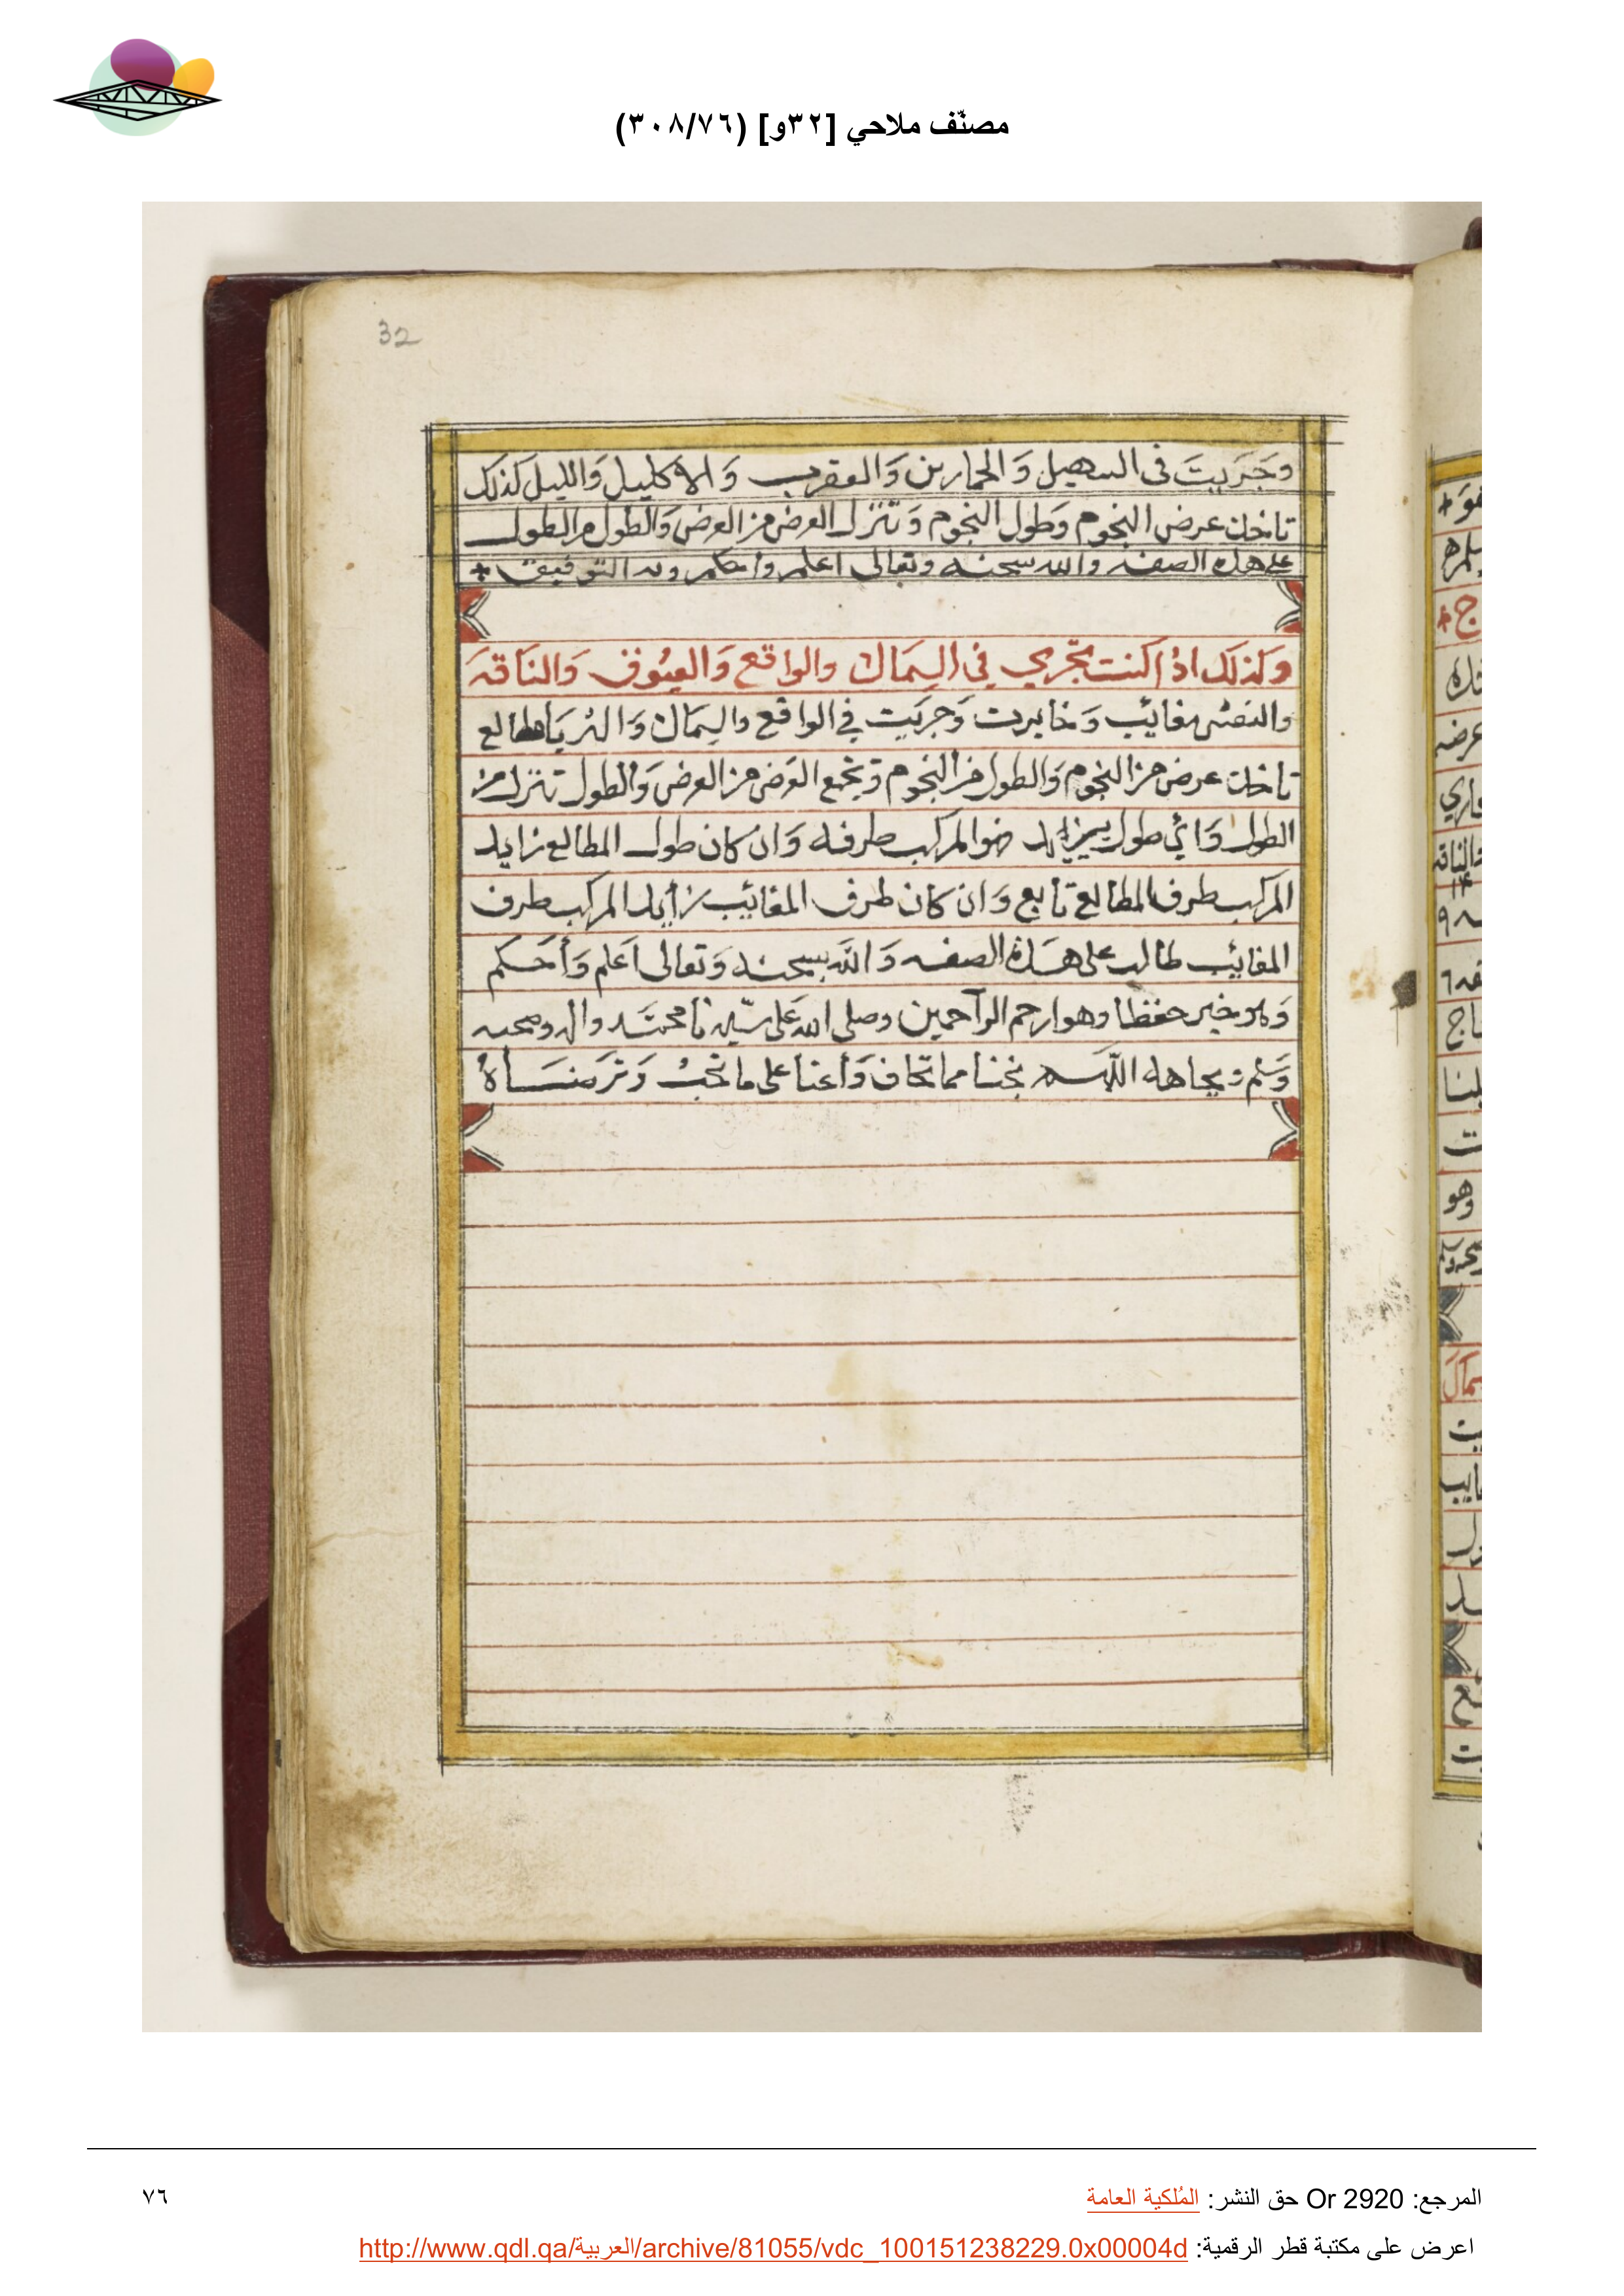 مصنّف ملاحي [٣٢و] (٣٠٨/٧٦)
32
وَجَرَيتَ في السهيل وَالحمارين وَالعقرب وَالاكليل وَالليل كذلك
تاخذ عرض النجوم وَطول النجوم وَتنزل العرض من العرض وَالطول من الطول
على هذه الصفه والله سبحنه وتعالى اعلم واحكم وبه التوفيق
وَكذلك اذا كنت تجري في السِمَاك والواقع وَالعيُوق وَالنَاقهَ
والنعش مغائب وَخابرت وَجريَت في الواقع والسِمَاك وَالثريَا مطالع
تاخذ عرض من النجوم وَالطول من النجوم وَتجمع العَرض من العرض وَالطول تنزل من
الطول وَائي طول يزايد ضوالمركب طرفه وَان كان طول المطالع زايد
المركب طرف المطالع تابع وَان كان طرف المغائب زايد المركب طرف
المغائب طالب على هَذه الصفه وَاللَه سبحنه وَتعالى اَعلم وَأحَكم
وَهو خير حفظا وهو ارحم الراحمين وصلى الله عَلى سيّدنا محمَد واله وصحبه
وَسَلم وبجاهه اللهم نجنا مما نخاف وَأعنا على ما تحبُ وَترَضَاهُ
المرجع: Or 2920 حق النشر: المُلكية العامة
٧٦
اعرض على مكتبة قطر الرقمية: http://www.qdl.qa/العربية/archive/81055/vdc_100151238229.0x00004d